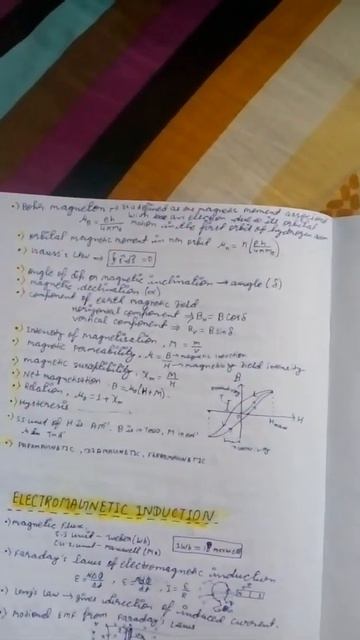 •) Bohr magneton → is defined as the magnetic moment associated
with an electron due to its orbital
μB = eh/4πme motion in the first orbit of hydrogen atom
•) orbital magnetic moment in nth orbit μn = n(eh/4πme)
•) Gauss's law ⇒ = 0
•) angle of dip or magnetic inclination → angle (δ)
•) magnetic declination (α)
•) component of earth magnetic field
horizontal component ⇒ BH = B cosδ
vertical component ⇒ BV = B sinδ
•) Intensity of magnetization, M = m/
•) magnetic permeability, μ = B → magnetic induction
H → magnetising field intensity
•) magnetic susceptibility, χm = M/H
•) Net magnetisation B = μ0(H+M).
•) Relation, = 1 + χm
•) Hysteresis
B
H
•) S.I unit of H is Am⁻¹. B is in Tesla, M in Am⁻¹
•) PARAMAGNETIC, DIAMAGNETIC, FERROMAGNETIC
ELECTROMAGNETIC INDUCTION
•) Magnetic flux.
S.I unit - weber (Wb)
C.G.S unit - maxwell (Mx)
1Wb = maxwell
•) Faraday's laws of electromagnetic induction
•) Lenz's law → gives direction of induced current.
•) Motional EMF from Faraday's laws